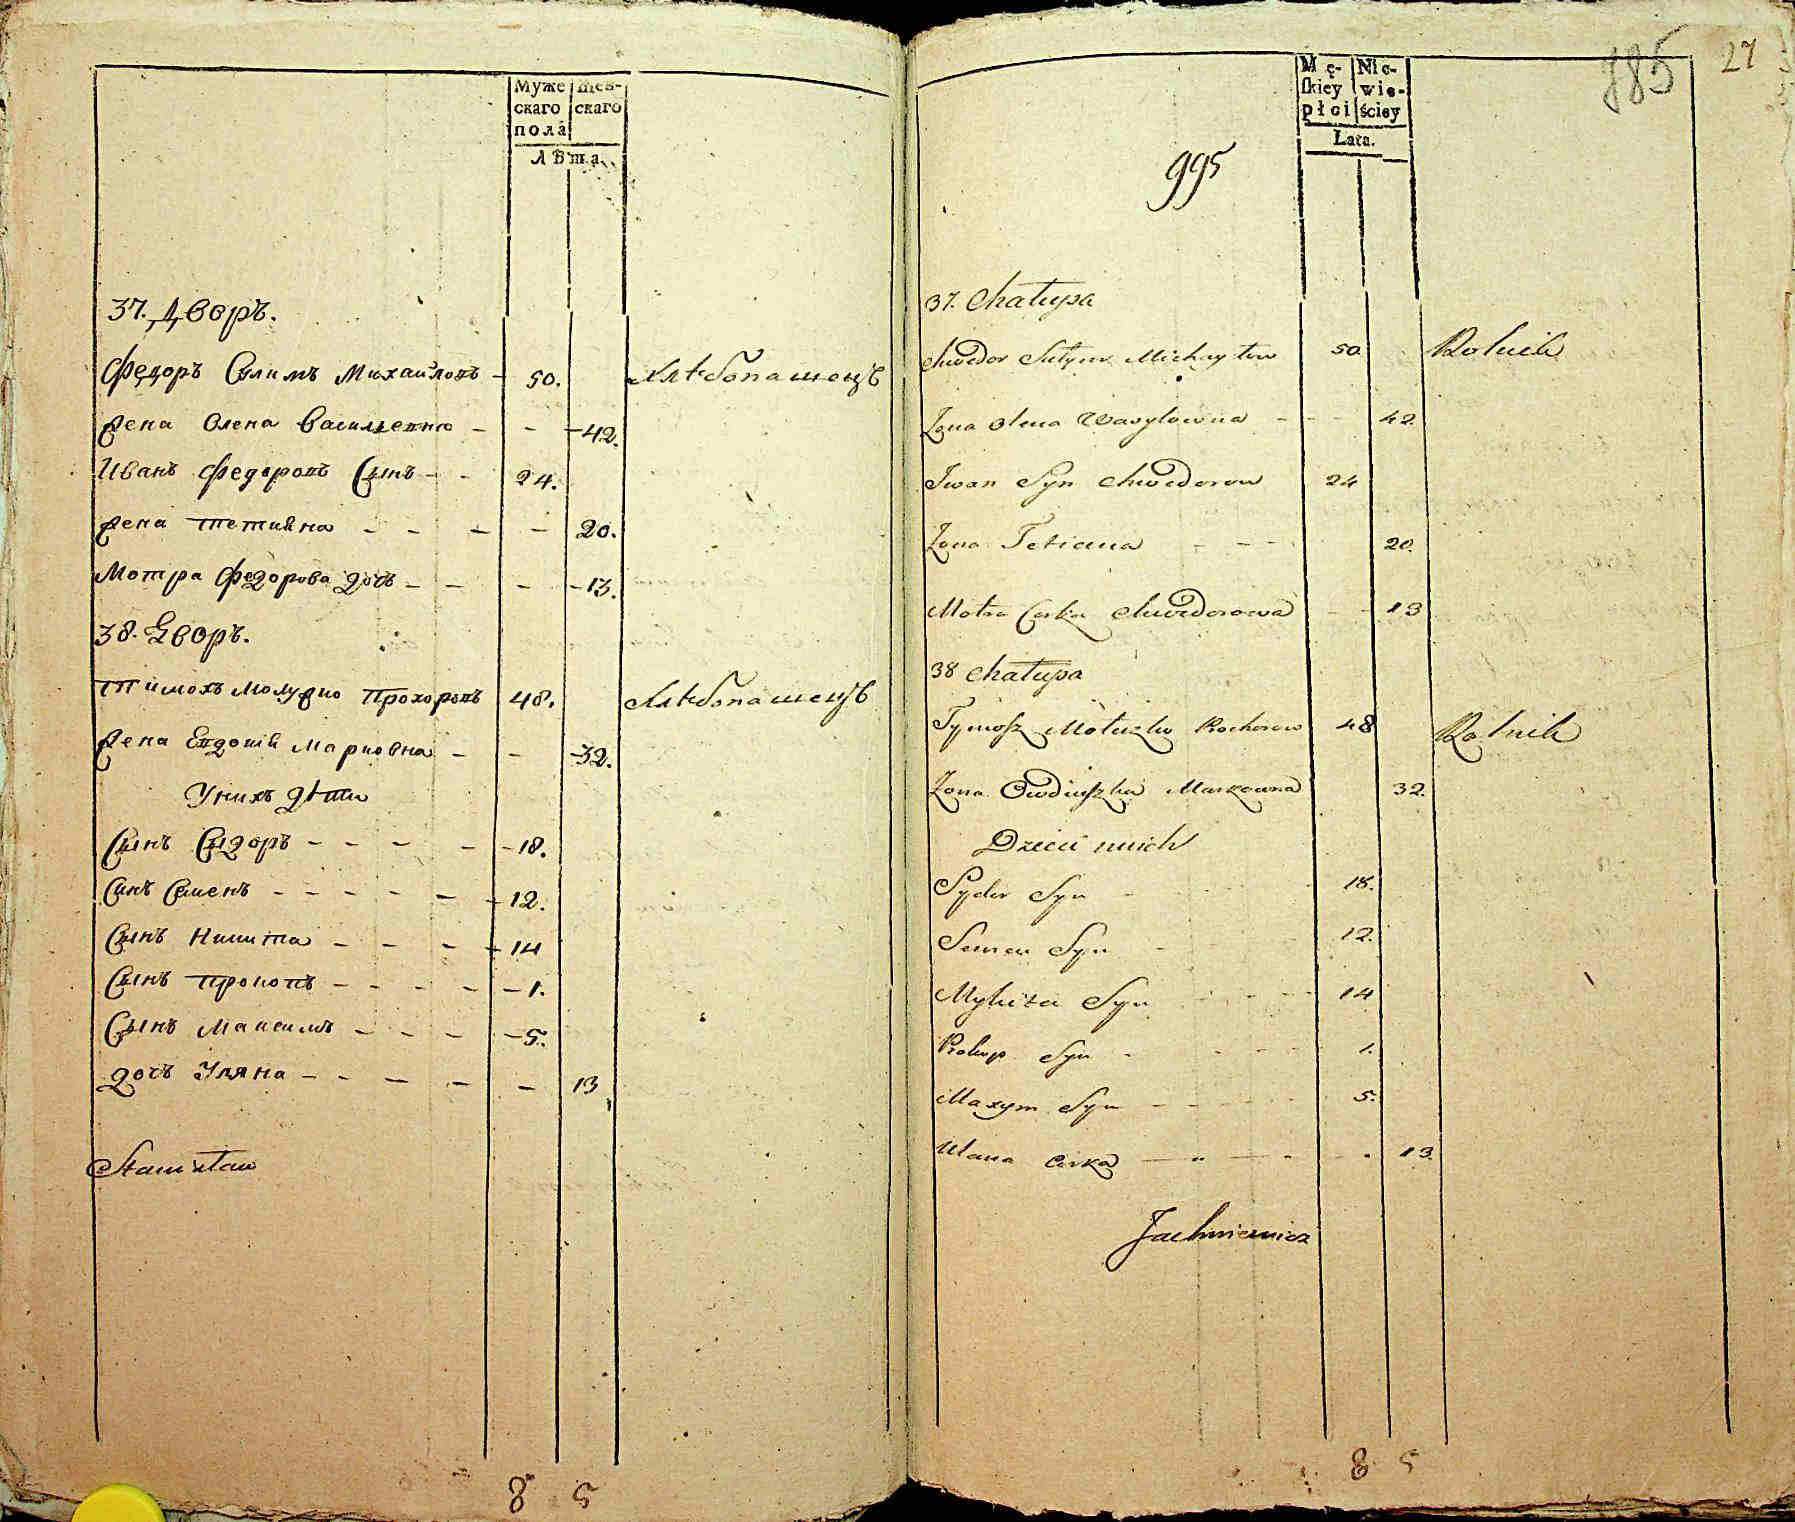 Муже
скаго
пола
Жен-
скаго
Лѣта.
37. Дворъ.
Федоръ Сулимъ Михайловъ - 50. Хлѣбопашецъ
Жена Олена Василевна - - - 42.
Иванъ Федоровъ Сынъ - - 24.
Жена Тетияна - - - - 20.
Мотра Федорова дочь - - - - 13.
38. Дворъ.
Тимохъ Молужко Прохоровъ 48. Хлѣбопашецъ
Жена Евдокия Марковна - - - 32.
У нихъ дѣти
Сынъ Сидоръ - - - - - 18.
Синъ Семенъ - - - - - - 12.
Сынъ Никита - - - - 14
Сынъ Прокопъ - - - - - 1.
Сынъ Максимъ - - - - - 5.
дочъ Уляна - - - - - 13
Stanisław
8 5
785 27
Mę-
skiey
płci
Nie-
wie-
ściey
Lata.
995
37. Chałupa
Chwedor Sułym Michayłow 50 Rolnik
Żona Olena Wasylowna - - - 42
Iwan Syn Chwedorow 24
Żona Tetiana - - - 20.
Motra Corka Chwedorowa - - 13
38 Chałupa
Tymosz Mołuzko Prochorow 48 Rolnik
Żona Owdiuszka Markowna 32.
Dzieci unich
Sydor Syn - 18.
Semen Syn - 12.
Mykita Syn - - - - 14
Prokop Syn - - - - 1.
Maxym Syn - - - - - 5.
Ulana Corka - - - - - 13.
Jachniewicz
8 5